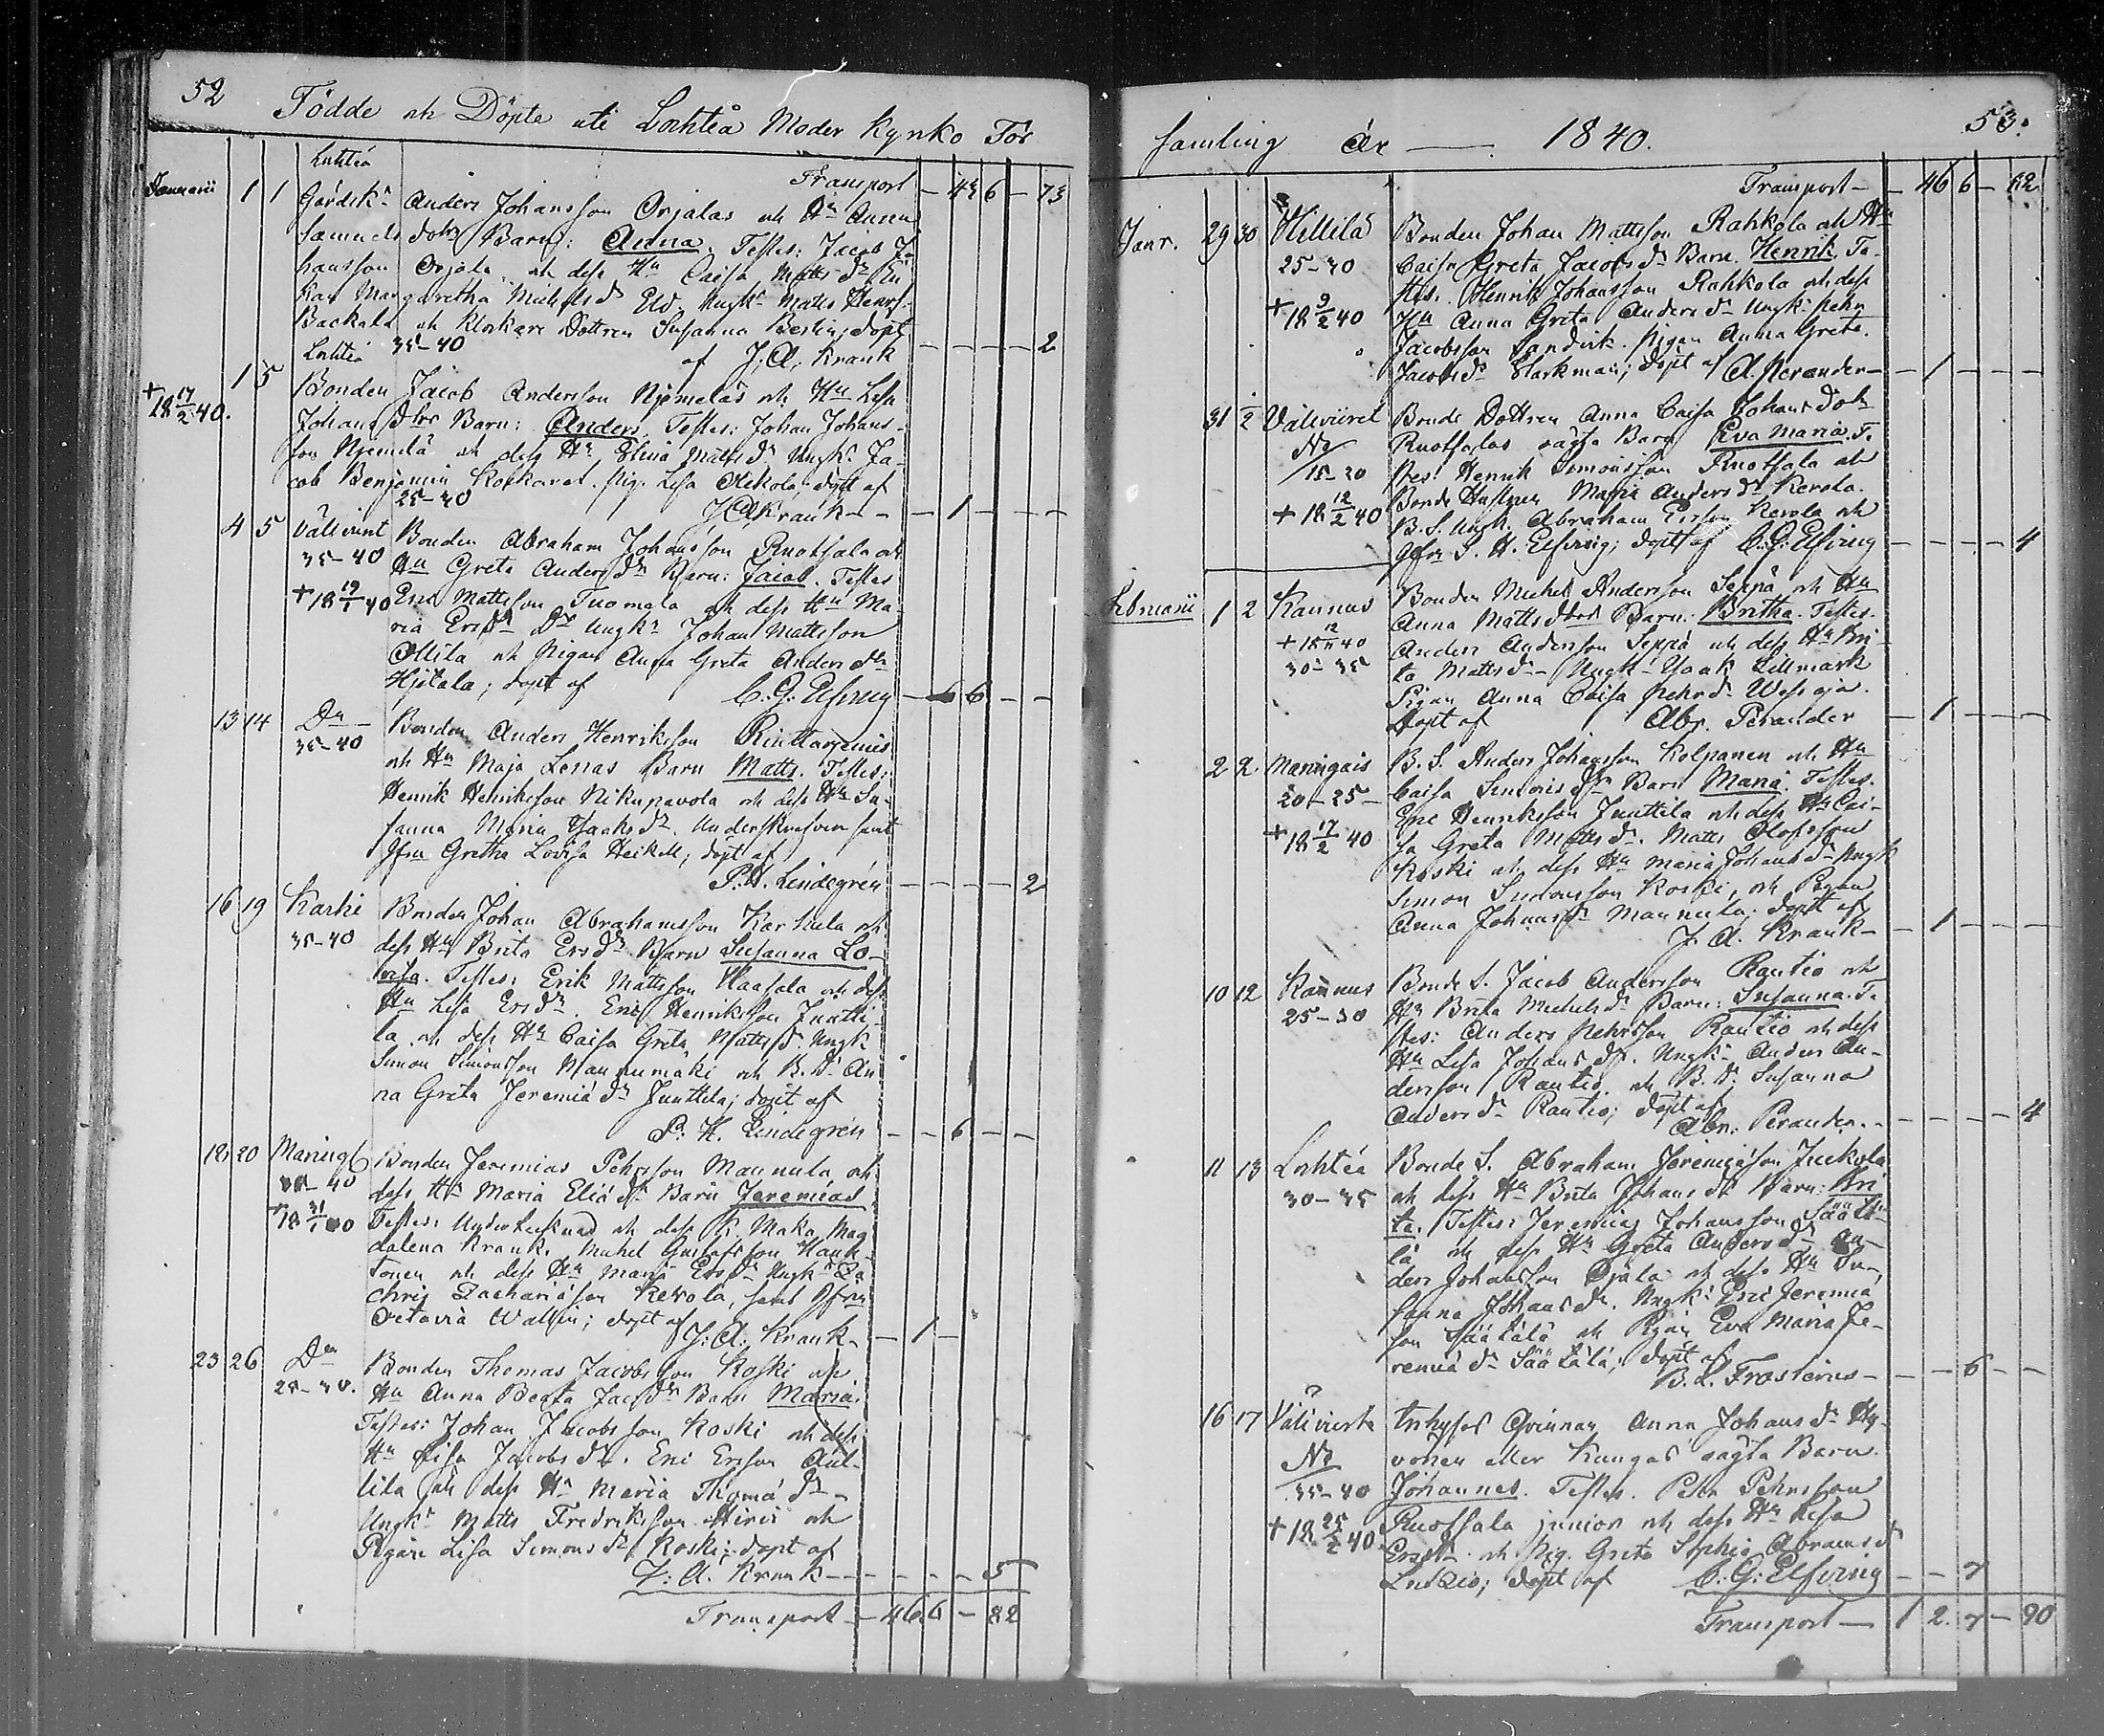 52
Födde och Döpte uti Lochteå Moder Kyrko För
Lochteå
Transport — 43 6 — 73
Januarii 1 1 Gårdsk. Anders Johansson Orjalas och Hu Anna
Samuels dotrs Barn: Anna. Testes: Jacob Jo
hansson Orjala och dess Hu Caisa Matts dr En
kan Margaretha Michelsd. Eld. Ungk. Matts Henrs.
Backala och Klockare Dottren Susanna Berlin; döpt
35–40
af J. A. Krank — — — — 2
Lochteå
1 5 Bonden Jacob Andersson Njemeläs och Hu Lisa
+ 18 17/2 40.
Johans dtrs Barn: Anders. Testes: Johan Johans-
son Njemelä och dess Hu Stina Matts dr Ungk. Ja-
cob Benjamin Korkavat. Pig. Lisa Olekola, döpt af
25–30
J A Krank — — 1 — — —
4 5 Välivirret Bonden Abraham Johansson Ruotsala och
35–40 Hu Greta Anders dr Barn: Jacob. Testes
+ 18 19/1 40 Eric Mattsson Tuomala och dess Hu Ma-
ria Ers dr Dr Ungk. Johan Mattsson
Ollila och Pigan Anna Greta Anders dtr
Hjitala; döpt af C. G. Elfving — 6 — —
13 14 Do — Bonden Anders Henriksson Rinttarjemis
35–40
och Hu Maja Lenas Barn Matts. Testes:
Henrik Henriksson Nikupavola och dess Hu Su-
sanna Maria Isaks dr. Underskrefven samt
Jfru Gretha Lovisa Heikell; döpt af
P. H. Lindegrén — — — — 2
16 19 Karhi Bonden Johan Abrahamsson Karhula och
35–40 dess Hu Brita Ers dr Barn Susanna Lo-
visa. Testes: Erik Mattsson Haasala och dess
Hu Lisa Ers dr. Eric Henriksson Juntti-
la och dess Hu Caisa Greta Matts dr. Ungk
Simon Simonsson Mannumäki och B. Dr An
na Greta Jeremiä dr Junttila; döpt af
P. H. Lindegrén — — 6 — —
18 20 Maring Bonden Jeremias Pehrsson Mannula och
40 dess Hu Maria Eliä dr Barn Jeremias
+ 18 31/1 40 Testes: Undertecknad och dess K. Maka Mag
dalena Krank. Michel Gustafsson Hauk-
tonen och dess Hu Maria Ers dr Ungk. Za
chris Zachariäson Kerola, samt Jfrun
Octavia Wallin; döpt af J. A. Krank — 1 —
23 26 Do Bonden Thomas Jacobsson Koski och
25–30. Hu Anna Beata Jac dr Barn Maria.
Testes: Johan Jacobsson Koski och dess
Hu Lisa Jacobs dr. Eric Ersson Aul-
lila och dess Hu Maria Thomä dr —
Ungk. Matts Fredriksson Hirvi och
Pigan Lisa Simons dr Koski; döpt af
J: A. Krank — — — — 5
Transport — 46 6 — 82
samling år — 1840.
53.
Transport — — 46 6 — 82
Janr. 29 30 Hillilä Bonden Johan Mattsson Rahkola och Hu
25–30 Caisa Greta Jacobs dr Barn. Henrik. Te-
stes. Henrik Johansson Rahkola och dess
+ 18 9/2 40 Hu Anna Greta Anders dr Ungk. Pehr
Jacobsson Sandvik. Pigan Anna Greta
Jacobs dr Starkman; döpt af A. Perander — 1 — — —
31 1/2 Välivirret Bonde Dottren Anna Caisa Johans Dotr
No Ruotsalas oägta Barn Eva Maria. Te
15–20 stes: Henrik Simonsson Ruotsala och
+ 18 12/2 40 Bonde Hustrun Maria Anders dr Kerola.
B. S. Ungk. Abraham Ersson Kerola och
Jfru S. H. Elfving; döpt af C. G. Elfving — — — — 4
Februarii 1 2 Kannus Bonden Michel Andersson Seppä och Hu
Anna Matts dtrs Barn. Britha. Testes.
+ 18 12/ 40 Anders Andersson Seppä och dess Hu Bri-
30–35 ta Matts dr — Ungk. Isaak Lillmark
Pigan Anna Caisa Pehrs dr
Döpt af Abr. Perander — 1 — — —
2 2 Maringais B. S. Anders Johansson Kolpanen och Hu
20–25 Caisa Simons dr Barn Maria. Testes.
Eric Henriksson Junttila och dess Hu Cai-
+ 18 17/2 40 sa Greta Matts dr. Matts Olofsson
Koski och dess Hu Maria Johans dr Ungk
Simon Simonsson Koski, och Pigan
Anna Johans dr Mannula; döpt af
J. A. Krank — 1 — — —
10 12 Kannus Bonde S. Jacob Andersson Rautio och
25–30 Hu Brita Michels dr Barn: Susanna. Te
stes: Anders Pehrsson Rautio och dess
Hu Lisa Johans dr. Ungk. Anders An-
dersson Rautio, och B. Dr Susanna
Anders dr Rautio; döpt af
Abr: Perander — — — — 4
11 13 Lochteå Bonde S. Abraham Jeremiäson Juckola
30–35 och dess Hu Brita Johans dr Barn: Bri
ta. Testes: Jeremias Johansson Säätä-
lä och dess Hu Greta Anders dr An-
ders Johansson Ojala och dess Hu Su-
sanna Johans dr. Ungk. Eric Jeremiä
son Säätälä och Pigan Eva Maria Je-
remiä dr Säätälä; döpt af
B. L. Frosterus — — — 6 — —
16 17 Välivirta Inhyses Qvinnan Anna Johans dr Hy-
No vönen eller Kangas oägta Barn
35–40 Johannes. Testes. Pehr Pehrsson
+ 18 25/2 40 Ruotsala junior och dess Hu Lisa
Ers dr och Pig. Greta Sophia Abrams dr
döpt af C. G: Elfving — — 7
Transport — 1 2 7 — 90